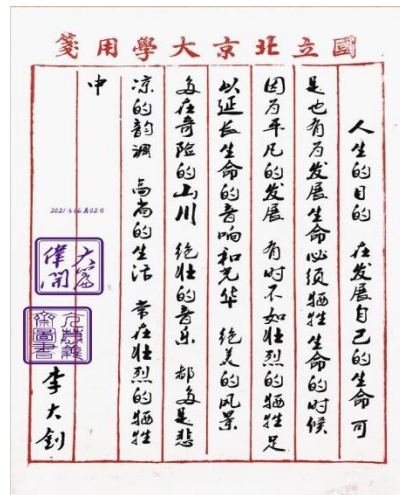 國立北京大學用箋
人生的目的 在发展自己的生命 可
是也有为发展生命必须牺牲生命的时候
因为平凡的发展 有时不如壮烈的牺牲足
以延长生命的音响和光华 绝美的风景
多在奇险的山川 绝壮的音乐 都多是悲
凉的韵调 高尚的生活 常在壮烈的牺牲
中
2021年06月02日
李大钊